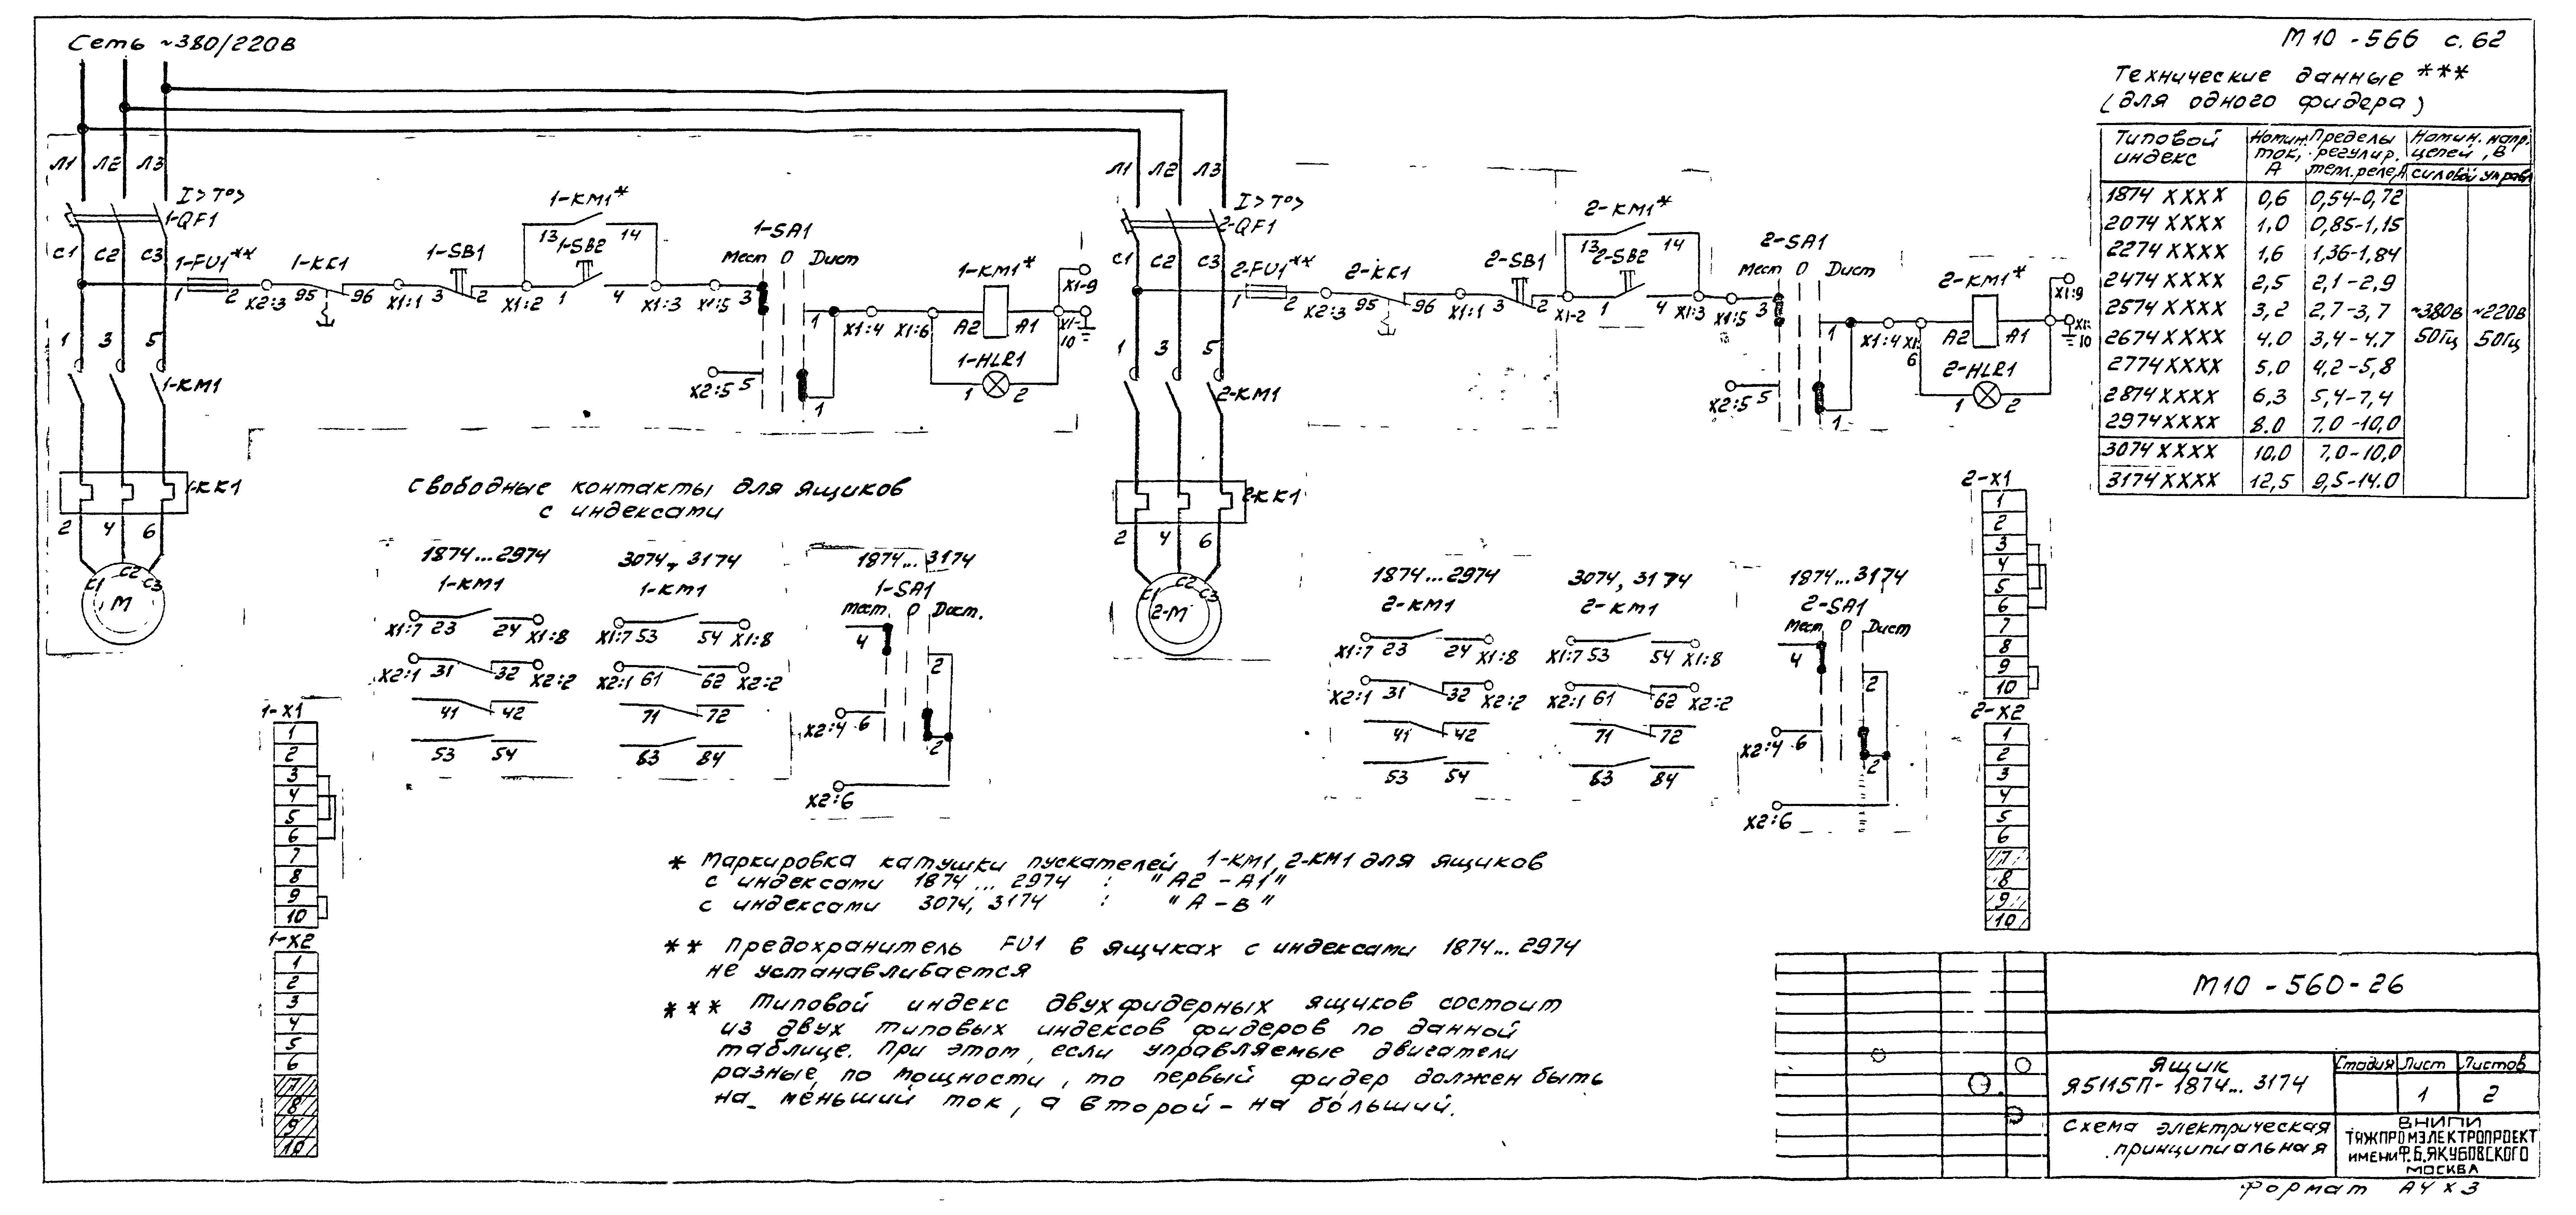 Сеть ~380/220В
М10 - 566 с. 62
Технические данные ***
(для одного фидера)
Типовой индекс | Номин. ток, А | Пределы регулир. тепл. реле, А | Номин. напр. цепей, В
силовой | управл
1874 XXXX 0,6 0,54-0,72
2074 XXXX 1,0 0,85-1,15
2274 XXXX 1,6 1,36-1,84
2474 XXXX 2,5 2,1-2,9
2574 XXXX 3,2 2,7-3,7 ~380в ~220в
2674 XXXX 4.0 3,4-4,7 50Гц 50Гц
2774 XXXX 5,0 4,2-5,8
2874 XXXX 6,3 5,4-7,4
2974 XXXX 8.0 7.0-10,0
3074 XXXX 10,0 7,0-10,0
3174 XXXX 12,5 9,5-14.0
Л1 Л2 Л3
I> T°>
1-QF1
С1 С2 С3
1-FU1**
1 2
X2:3
1-KK1
95 96
X1:1
1-SB1
3 2
X1:2
1-KM1*
13 14
1-SB2
1 4
X1:3
X1:5
1-SA1
Мест 0 Дист
3
1
X2:5 5
1
X1:4
X1:6
1-KM1*
A2 A1
1-HLR1
1 2
X1-9
X1-10
1 3 5
1-KM1
1-KK1
2 4 6
С1 С2 С3
М
Л1 Л2 Л3
I> T°>
2-QF1
С1 С2 С3
2-FU1**
1 2
X2:3
2-KK1
95 96
X1:1
2-SB1
3 2
X1-2
2-KM1*
13 14
2-SB2
1 4
X1:3
X1:5
2-SA1
Мест 0 Дист
3
1
X2:5 5
1
X1:4
X1:6
2-KM1*
A2 A1
2-HLR1
1 2
X1:9
X1:10
1 3 5
2-KM1
2-KK1
2 4 6
С1 С2 С3
2-М
Свободные контакты для ящиков
с индексами
1874...2974
1-KM1
X1:7 23 24 X1:8
X2:1 31 32 X2:2
41 42
53 54
3074, 3174
1-KM1
X1:7 53 54 X1:8
X2:1 61 62 X2:2
71 72
63 84
1874...3174
1-SA1
Мест. 0 Дист.
4
2
X2:4 6
2
X2:6
1874...2974
2-KM1
X1:7 23 24 X1:8
X2:1 31 32 X2:2
41 42
53 54
3074, 3174
2-KM1
X1:7 53 54 X1:8
X2:1 61 62 X2:2
71 72
63 84
1874...3174
2-SA1
Мест 0 Дист
4
2
X2:4 6
2
X2:6
1-X1
1
2
3
4
5
6
7
8
9
10
1-X2
1
2
3
4
5
6
7
8
9
10
2-X1
1
2
3
4
5
6
7
8
9
10
2-X2
1
2
3
4
5
6
7
8
9
10
* Маркировка катушки пускателей 1-KM1, 2-KM1 для ящиков
с индексами 1874... 2974 : "А2 - А1"
с индексами 3074, 3174 : "А - В"
** Предохранитель FU1 в ящиках с индексами 1874... 2974
не устанавливается
*** Типовой индекс двухфидерных ящиков состоит
из двух типовых индексов фидеров по данной
таблице. При этом, если управляемые двигатели
разные по мощности, то первый фидер должен быть
на меньший ток, а второй - на больший.
М10 - 560-26
Ящик
Я5115П - 1874... 3174
Стадия Лист Листов
1 2
Схема электрическая
принципиальная
ВНИПИ
ТЯЖПРОМЭЛЕКТРОПРОЕКТ
ИМЕНИ Ф.Б.ЯКУБОВСКОГО
МОСКВА
Формат А4х3